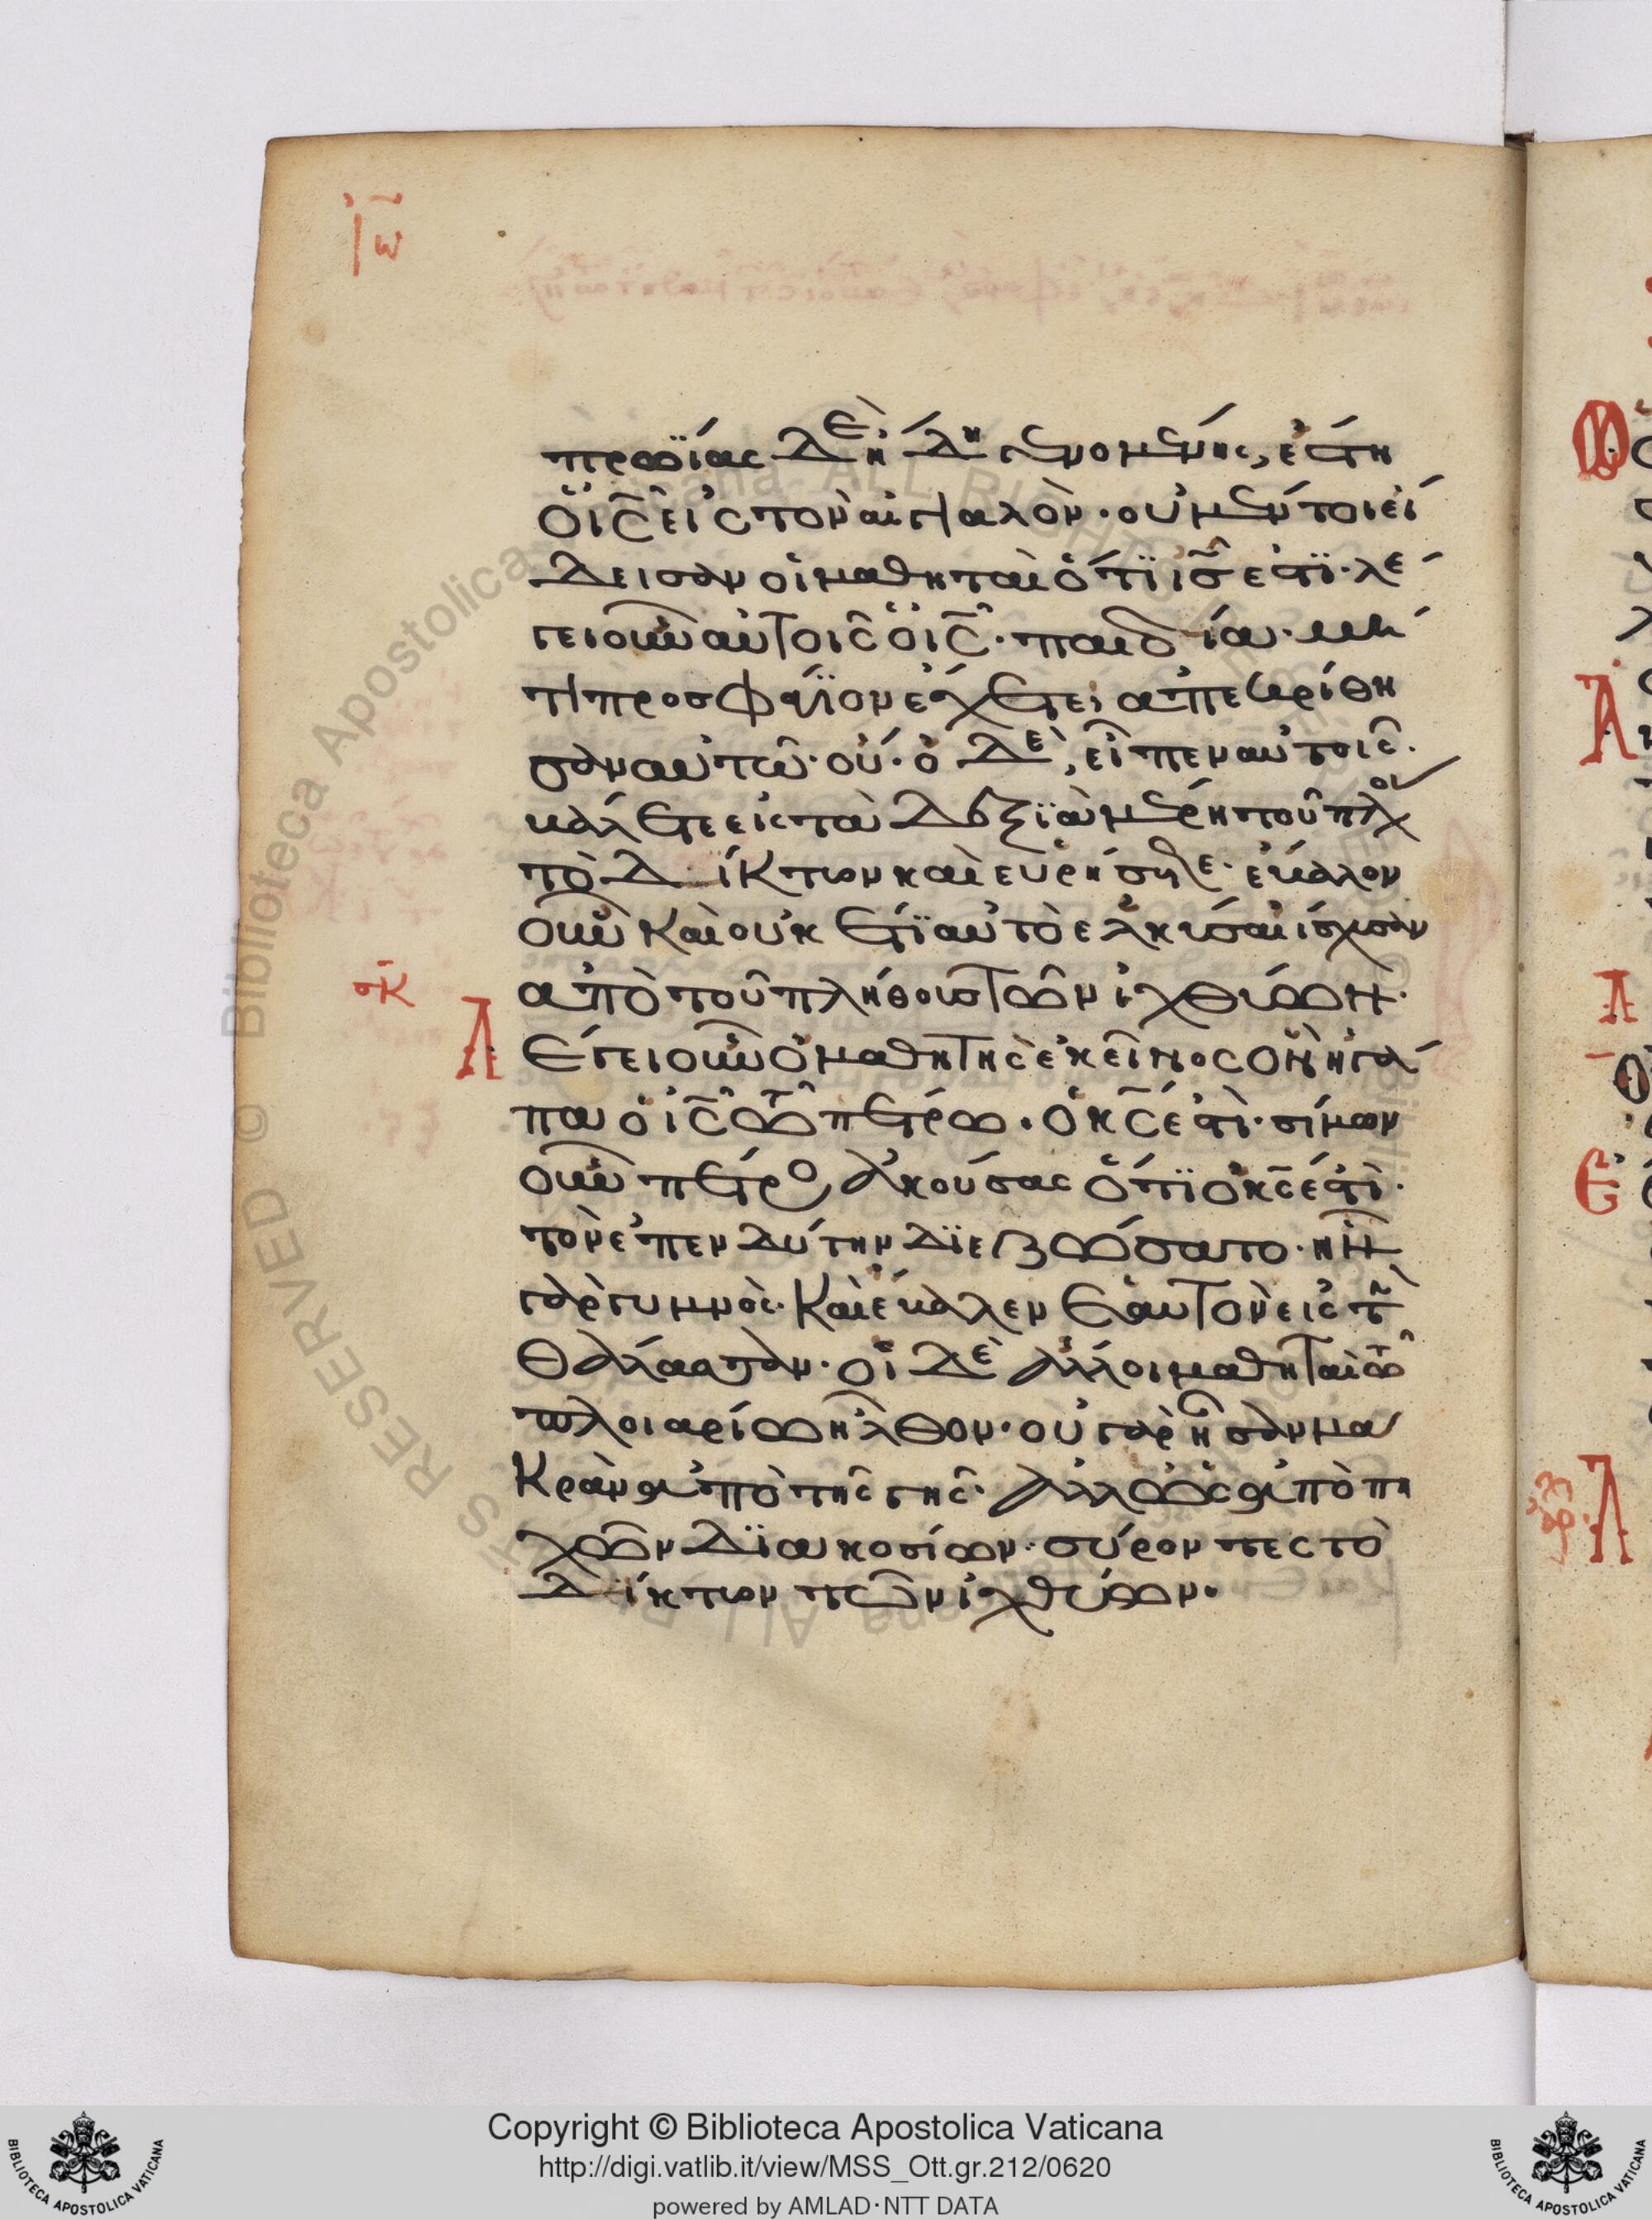 ἰω̃
πρωΐας δὲ ἤδη γενομένης, ἔστη
ὁ ἰς̃ εἰς τὸν αἰγιαλὸν· οὐ μέντοι εἴ
δεισαν οἱ μαθηταὶ ὅτι ϊς̃ ἐστϊ· λέ
γει οὖν αὐτοῖς ὁ ις̃· παιδία· μή
τι προσφάϊον ἔχετε; ἀπεκρίθη
σαν αὐτῶ· οὔ· ὁ δὲ, εἶπεν αὐτοῖς·
βάλετε εἰς τὰ δεξϊὰ μέρη τοῦ πλοί
τὸ δίκτυον καὶ εὑρήσητε· ἔβαλον
οὖν καὶ οὐκ ἔτϊ αὐτὸ ἑλκύσαι ἴσχυσαν
ἀπὸ τοῦ πλήθους τῶν ἰχθύων·
κ
Λ
Έγει οὖν ὁ μαθητὴς ἐκεῖνος ὃν ἠγά
πα ὁ ἰς̃ τῶ πέτρω· ὁ κς̃ ἐστὶ· σίμων
οὖν πέτρος ἀκούσας ὅτϊ ὁ κς̃ ἐστὶ·
τὸν ἐπενδύτην δϊεζώσατο· ἦν
γὰρ γυμνὸς· καὶ ἔβαλεν ἑαυτὸν εἰς τὴν
θάλασσαν· οἱ δὲ ἄλλοι μαθηταὶ τῶ
πλοιαρίω ἦλθον· οὐ γὰρ ἦσαν μα
κρὰν ἀπὸ τῆς γῆς· ἀλλ' ὡς ἀπὸ πη
χῶν δϊακοσίων· σύροντες τὸ
δίκτυον τῶν ἰχθύων·
Λ
Λ
Ε
Λ
Copyright © Biblioteca Apostolica Vaticana
http://digi.vatlib.it/view/MSS_Ott.gr.212/0620
powered by AMLAD·NTT DATA
BIBLIOTECA APOSTOLICA VATICANA
BIBLIOTECA APOSTOLICA VATICANA